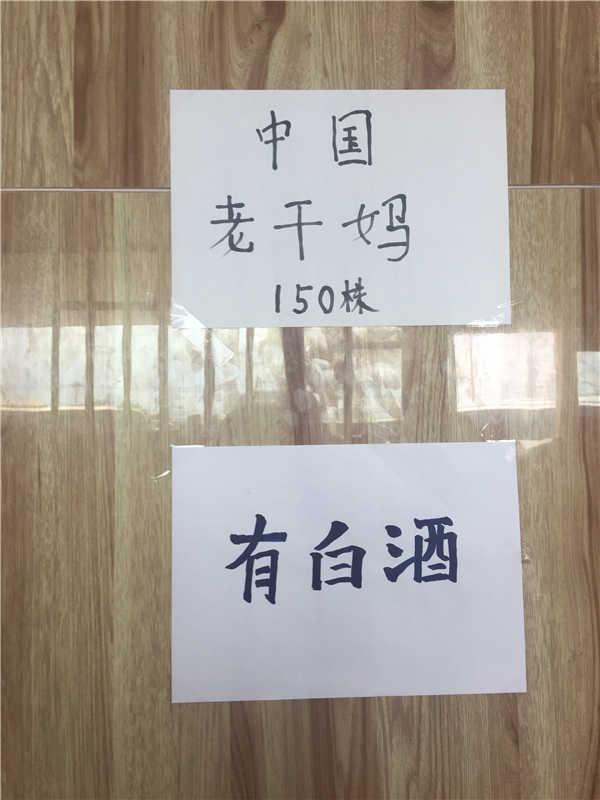 中国
老干妈
150株
有白酒